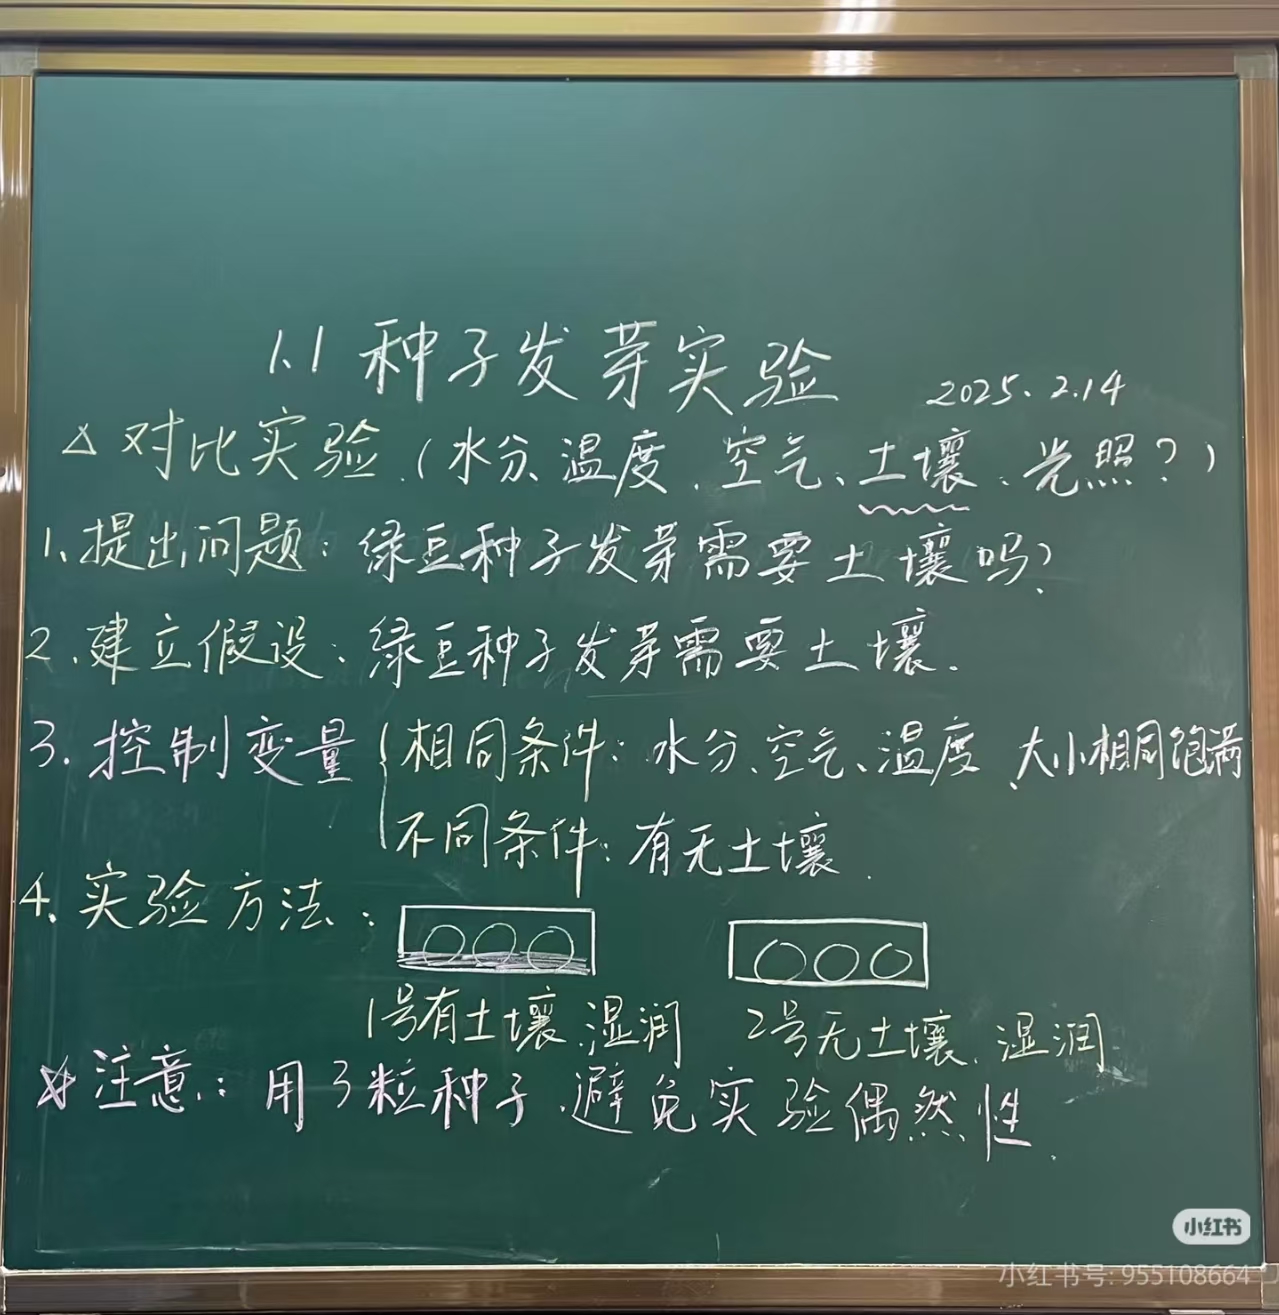 1.1 种子发芽实验
2025.2.14
△对比实验.(水分、温度、空气、土壤、光照?)
1、提出问题:绿豆种子发芽需要土壤吗?
2.建立假设:绿豆种子发芽需要土壤.
3.控制变量{相同条件:水分、空气、温度、大小相同饱满
不同条件:有无土壤.
4、实验方法:
1号有土壤、湿润 2号无土壤、湿润
☆注意:用3粒种子、避免实验偶然性.
小红书
小红书号:955108664